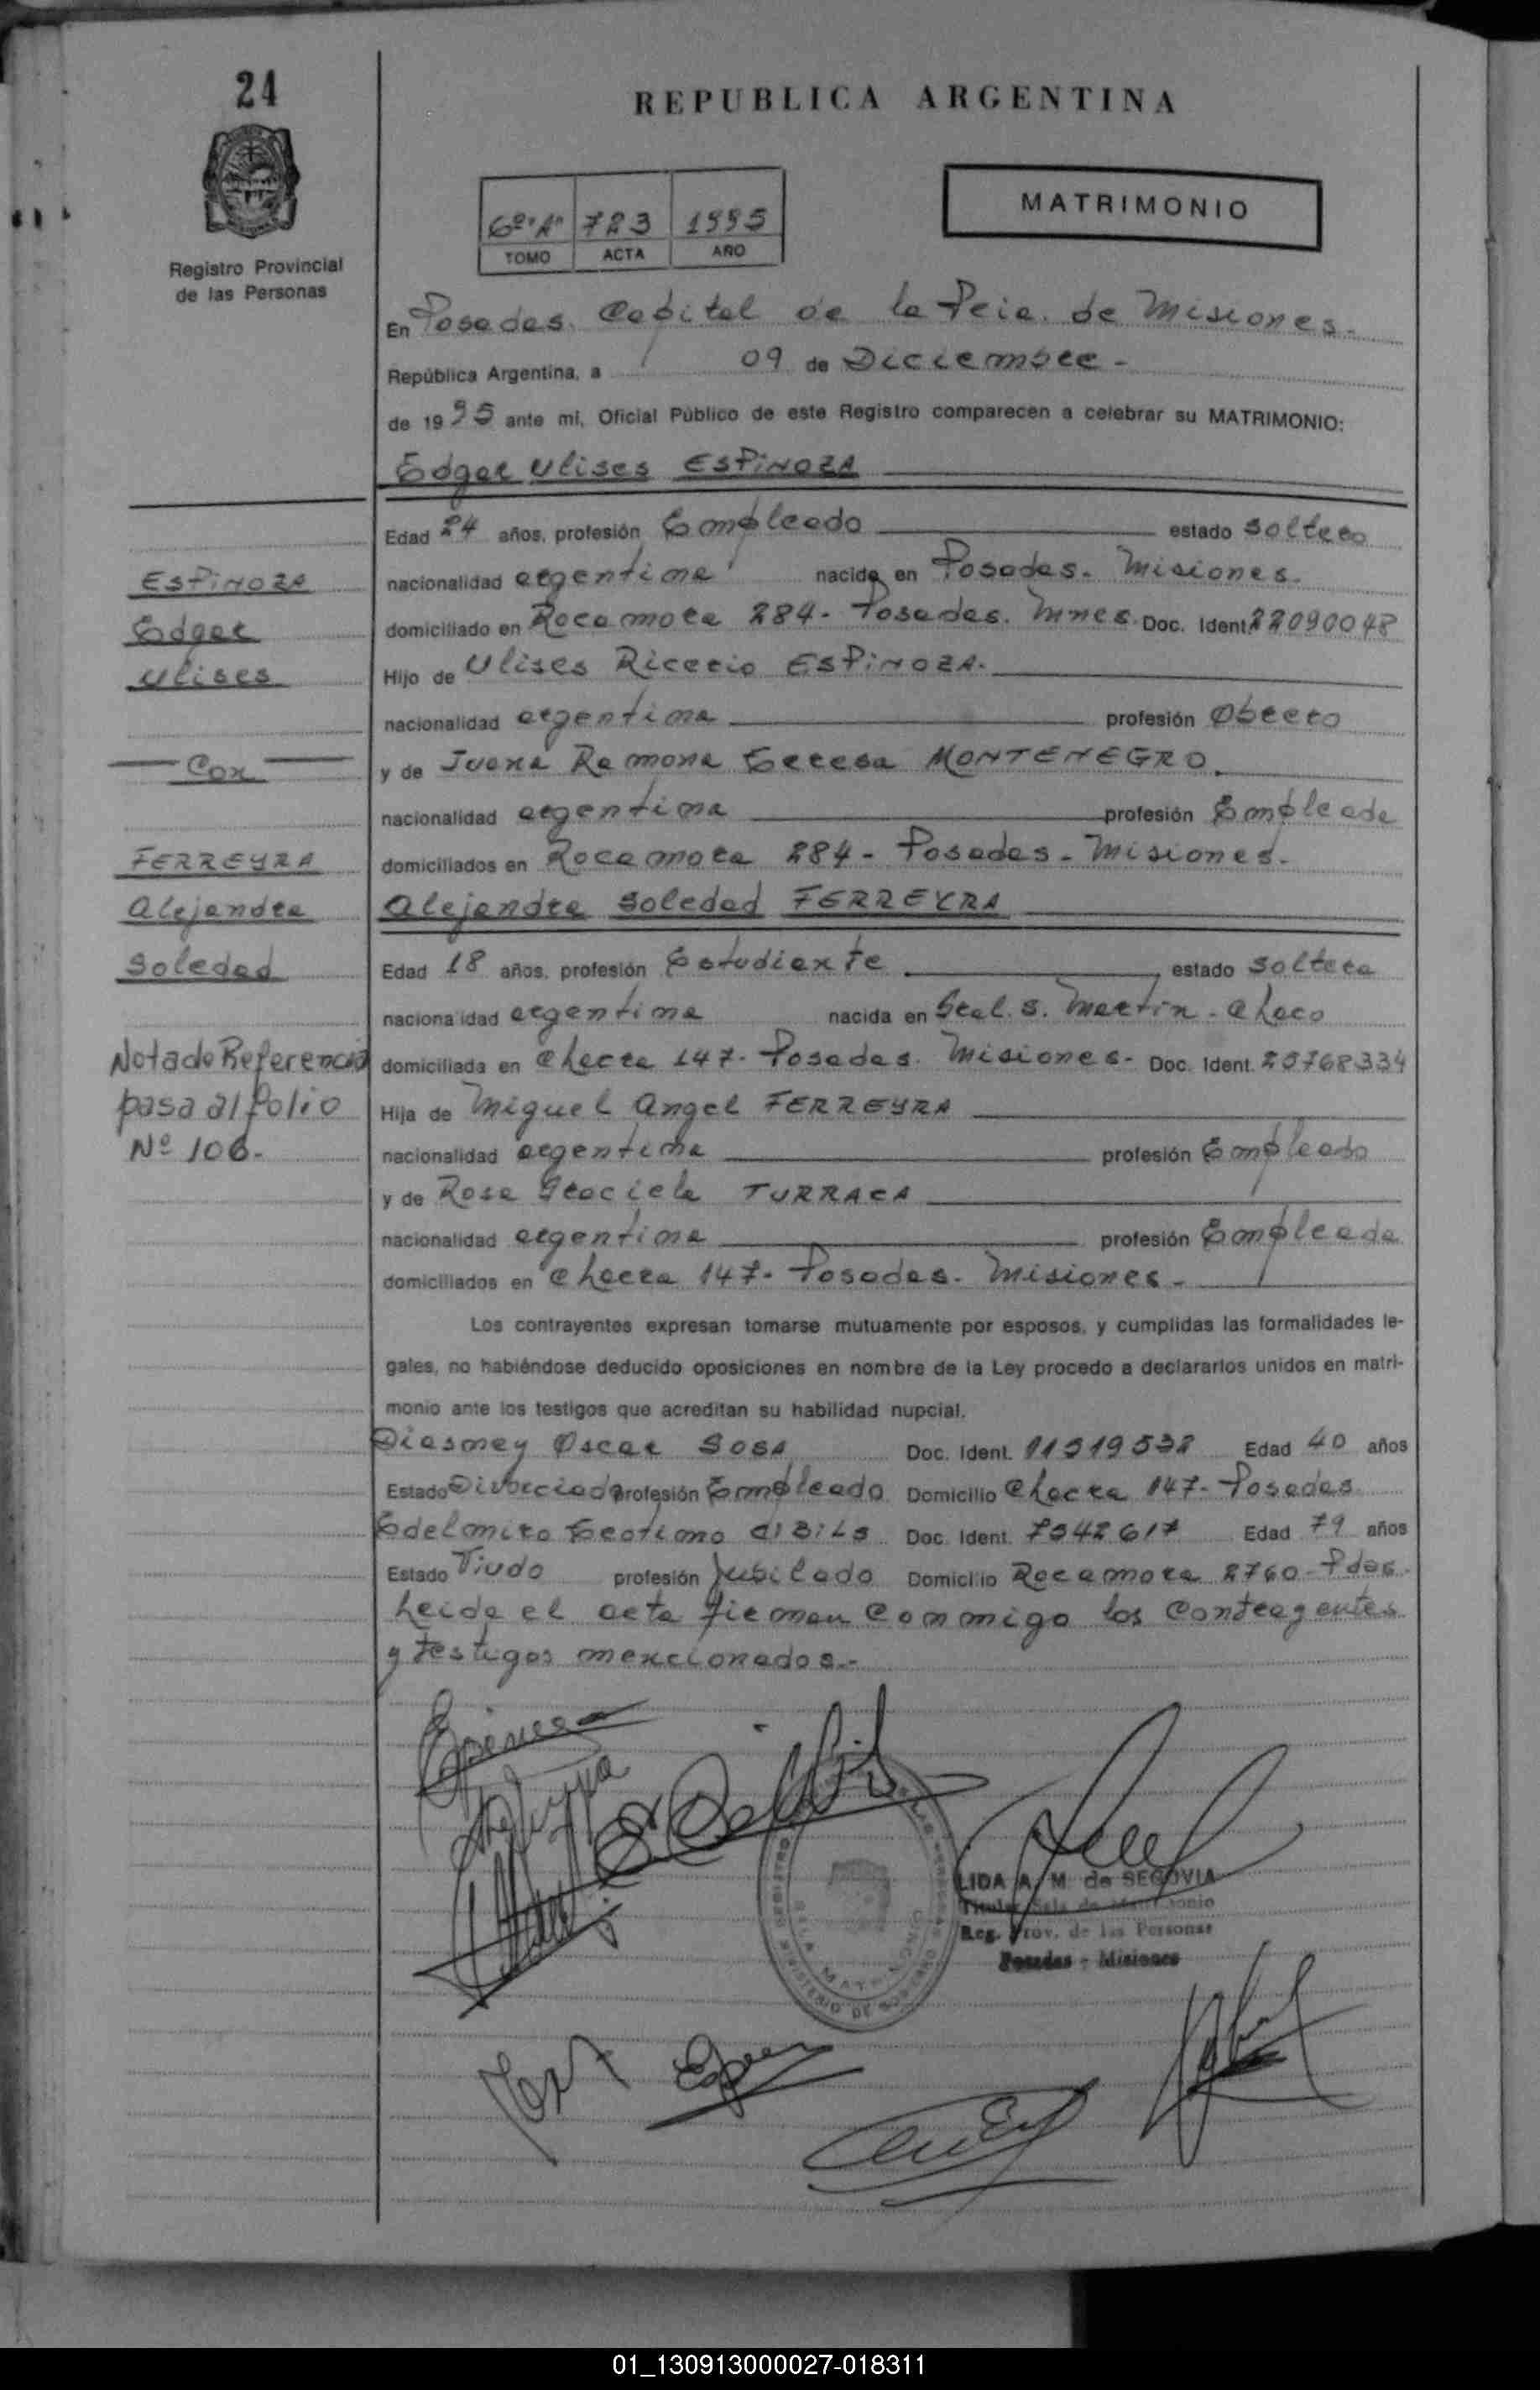 24
REPUBLICA ARGENTINA
MATRIMONIO
6º "A" 723 1995
TOMO ACTA AÑO
Registro Provincial
de las Personas
En Posadas. Capital de la Pcia. de Misiones.-
República Argentina, a 09 de Diciembre.-
de 1995 ante mi, Oficial Público de este Registro comparecen a celebrar su MATRIMONIO:
Edgar Ulises ESPINOZA
Edad 24 años, profesión Empleado estado soltero
nacionalidad argentina nacido en Posadas. Misiones.
domiciliado en Rocamora 284.- Posadas. Mnes. Doc. Ident. 22090048
Hijo de Ulises Ricerio ESPINOZA.
nacionalidad argentina profesión Obrero
y de Juana Ramona Teresa MONTENEGRO.
nacionalidad argentina profesión Empleada
domiciliados en Rocamora 284.- Posadas.- Misiones.-
Alejandra Soledad FERREYRA
Edad 18 años, profesión Estudiante estado soltera
nacionalidad argentina nacida en Gral. S. Martín - Chaco
domiciliada en Chacra 147.- Posadas. Misiones.- Doc. Ident. 25768334
Hija de Miguel Angel FERREYRA
nacionalidad argentina profesión Empleado
y de Rosa Graciela TURRACA
nacionalidad argentina profesión Empleada
domiciliados en Chacra 147.- Posadas. Misiones.-
Los contrayentes expresan tomarse mutuamente por esposos, y cumplidas las formalidades le-
gales, no habiéndose deducido oposiciones en nombre de la Ley procedo a declararlos unidos en matri-
monio ante los testigos que acreditan su habilidad nupcial.
Diasmey Oscar SOSA Doc. Ident. 11519532 Edad 40 años
Estado Divorciado profesión Empleado Domicilio Chacra 147.- Posadas
Edelmiro Teotimo CIBILS Doc. Ident. 7542617 Edad 79 años
Estado Viudo profesión Jubilado Domicilio Rocamora 2760 - Pdas.
Leída el acta firman conmigo los contrayentes
y testigos mencionados.-
ESPINOZA
Edgar
Ulises
Con
FERREYRA
Alejandra
Soledad
Nota de Referencia
pasa al folio
Nº 106.-
LIDA A. M. de SEGOVIA
Titular Sala de Matrimonio
Reg. Prov. de las Personas
Posadas - Misiones
01_130913000027-018311